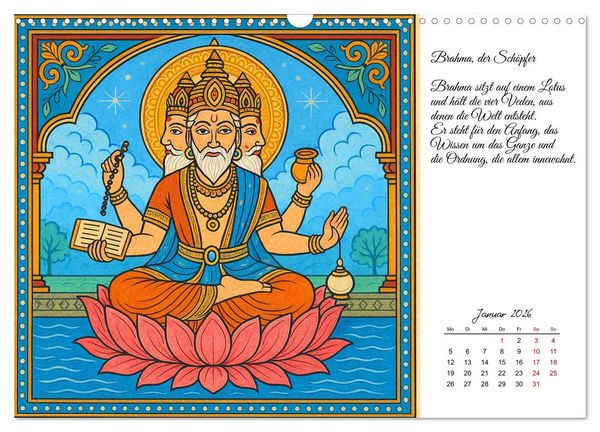 Brahma, der Schöpfer
Brahma sitzt auf einem Lotus
und hält die vier Veden, aus
denen die Welt entsteht.
Er steht für den Anfang, das
Wissen um das Ganze und
die Ordnung, die allem innewohnt.
Januar 2026
Mo Di Mi Do Fr Sa So
1 2 3 4
5 6 7 8 9 10 11
12 13 14 15 16 17 18
19 20 21 22 23 24 25
26 27 28 29 30 31